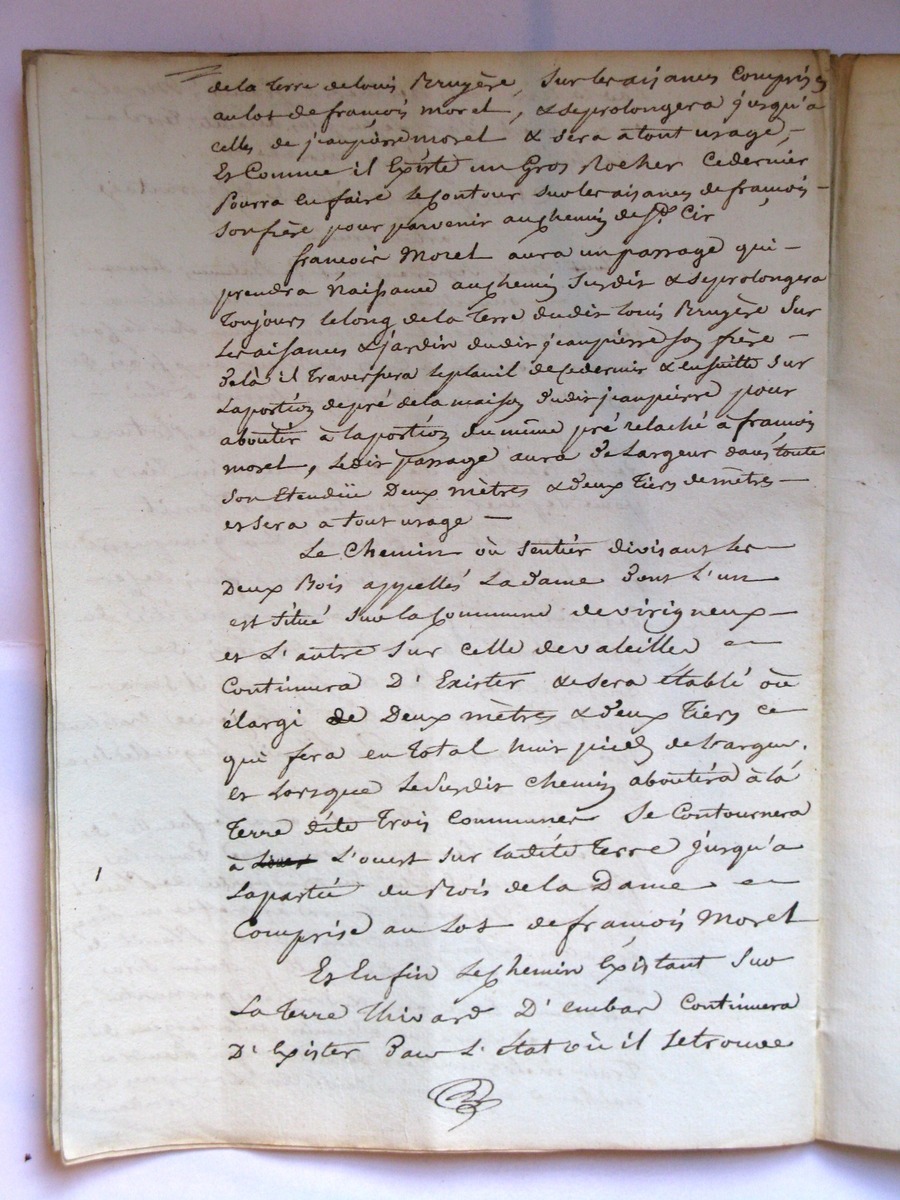 de la terre de louis Bruyère, sur les aisances comprises
au lot de françois morel, & se prolongera jusqu'a
celles de jean pierre morel & sera a tout usage, –
Et Comme il Éxiste un Gros Rocher Ce dernier
Pourra En faire le Contour sur les aisances de françois –
son frère pour parvenir au chemin de St. Cir
françois Morel aura un passage qui –
prendra Naissance au chemin susdit & se prolongera
toujours le long de la terre du dit Louis Bruyère sur
les aisances & jardin du dit jean pierre son frère –
de là il traversera le plauil de Ce dernier & ensuitte sur
la portion de pré de la maison du dit jean pierre pour
aboutir à la portion du même pré relaché a françois
morel, le dit passage aura de Largeur dans toute
son Etendüe Deux mètres & deux tiers de mètres –
et sera a tout usage –
Le Chemin où sentier divisant les
Deux Bois appellés La dame dont L'un
est situé sur la Commune de virigneux –
et L'autre sur celle de valeille
Continuera D'Exister & sera établi où
élargi de Deux mètres & deux tiers ce
qui fera en total huit pieds de Largeur.
et Lorsque Le susdit chemin aboutira à la
terre dite trois Communes se Contournera
à L'ouest sur la dite terre jusqu'a
La partie du Bois de la Dame
Comprise au Lot de françois Morel
Et Enfin Le chemin Éxistant sur
La terre Thivard D'embar Continuera
D'Exister Dans L'état où il se trouve